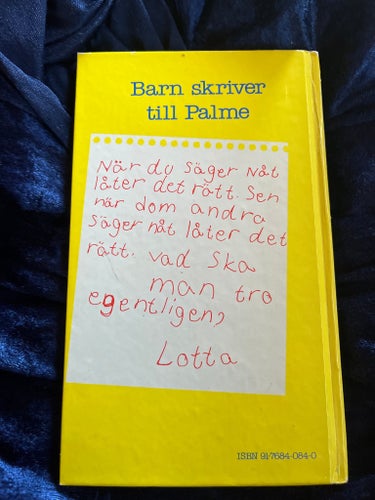 Barn skriver
till Palme
När du säger Nåt
låter det rätt. Sen
när dom andra
säger nåt låter det
rätt. vad ska
man tro
egentligen?
Lotta
ISBN 91-7684-084-0